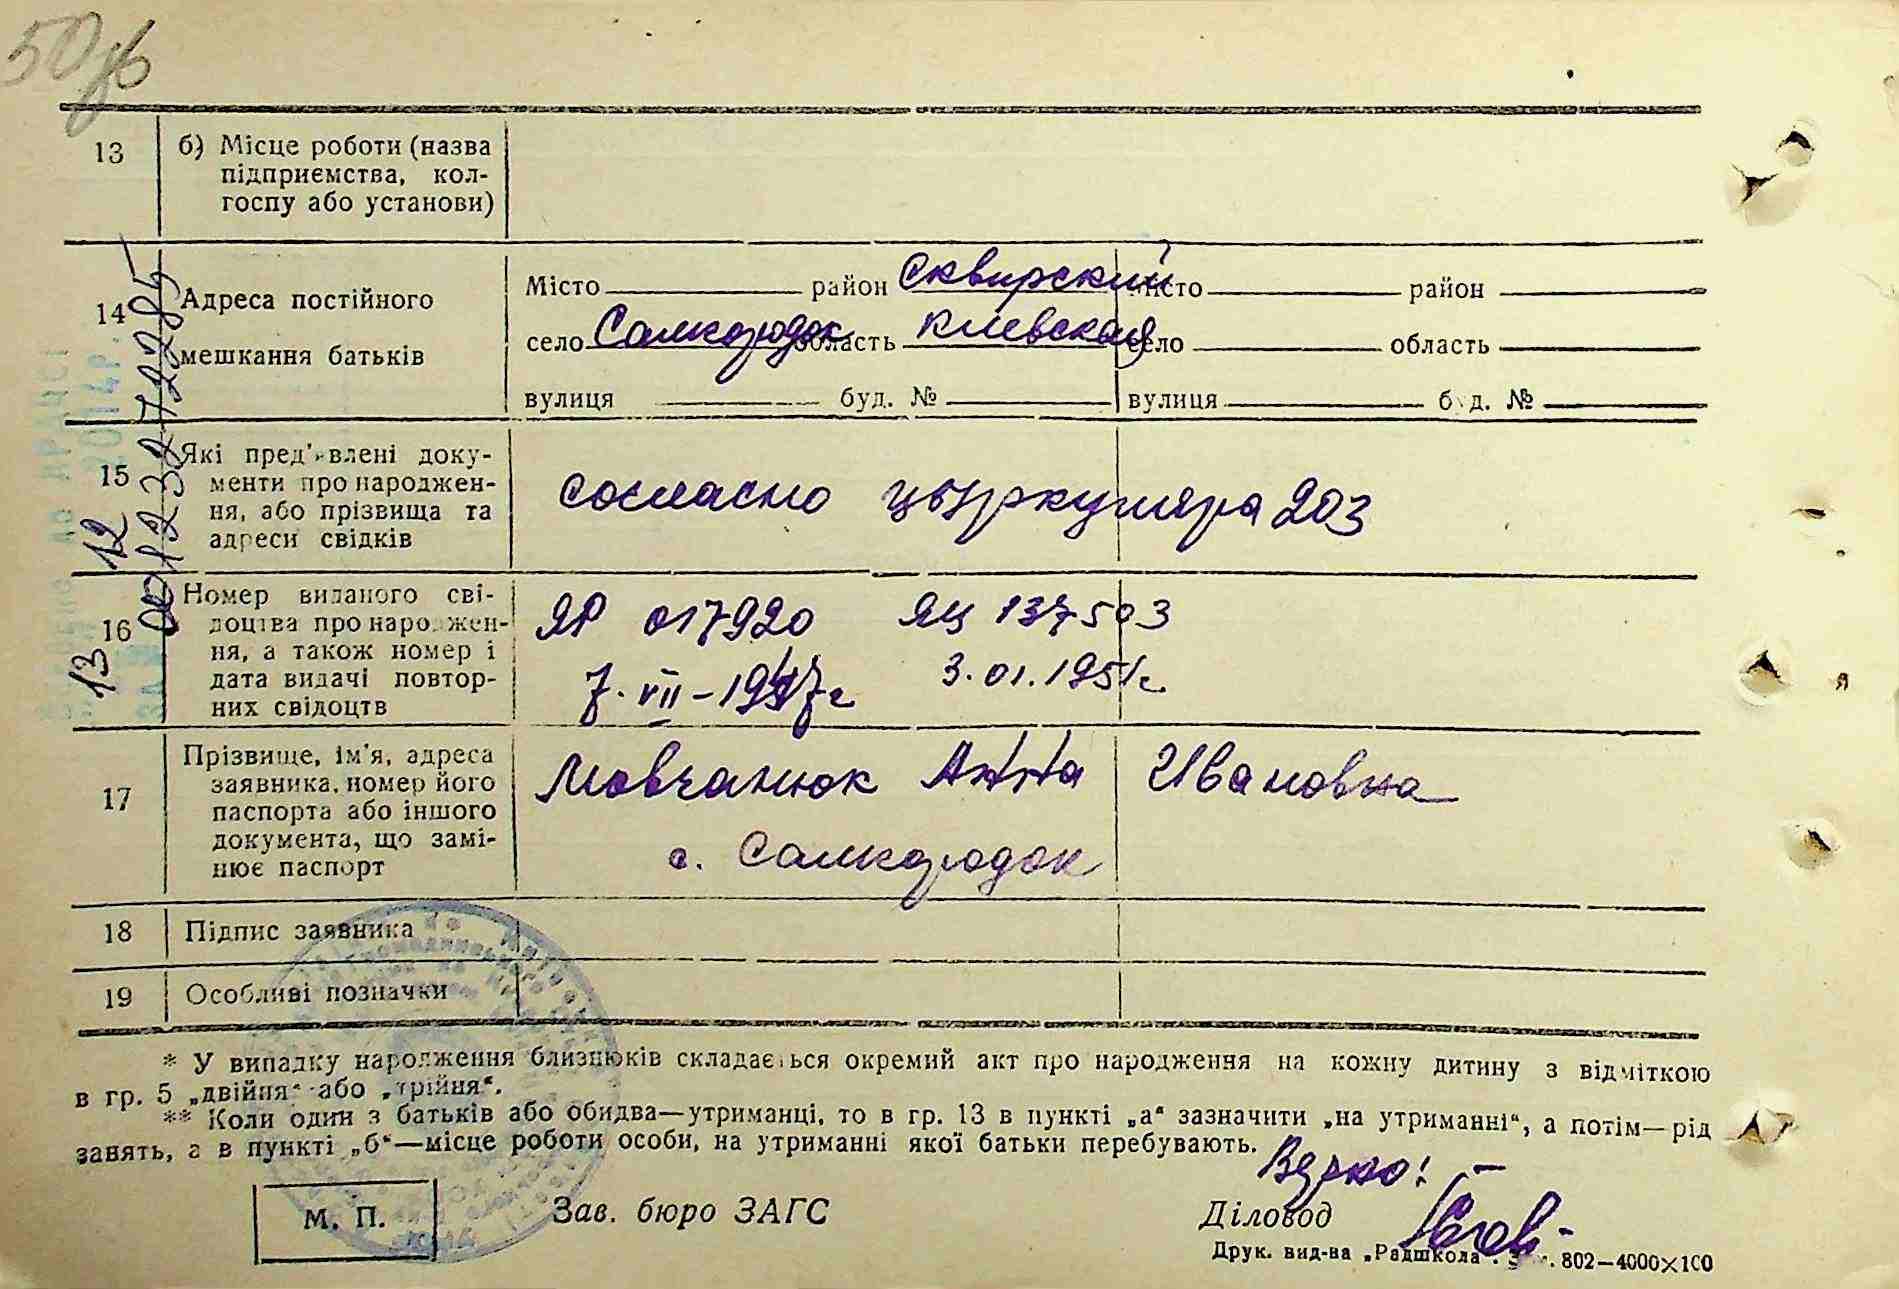 50зв
13 б) Місце роботи (назва
підприємства, кол-
госпу або установи)
14 Адреса постійного
мешкання батьків
Місто район Сквирский Місто район
село Самгородок область Киевская село область
вулиця буд. № вулиця буд. №
15 Які пред'явлені доку-
менти про народжен-
ня, або прізвища та
адреси свідків
согласно цыркуляра 203
16 Номер виданого сві-
доцтва про народжен-
ня, а також номер і
дата видачі повтор-
них свідоцтв
ЯР 017920 ЯЦ 137503
7. VII - 1947г 3.01.1951г.
17 Прізвище, ім'я, адреса
заявника, номер його
паспорта або іншого
документа, що замі-
нює паспорт
Мовчанюк Анна Ивановна
с. Самгородок
18 Підпис заявника
19 Особливі позначки
13 12
001232722285
* У випадку народження близнюків складається окремий акт про народження на кожну дитину з відміткою
в гр. 5 „двійня“ або „трійня“.
** Коли один з батьків або обидва—утриманці, то в гр. 13 в пункті „а“ зазначити „на утриманні“, а потім—рід
занять, а в пункті „б“—місце роботи особи, на утриманні якої батьки перебувають.
Вірно!
М. П. Зав. бюро ЗАГС Діловод
Друк. вид-ва „Радшкола“. 802—4000×100